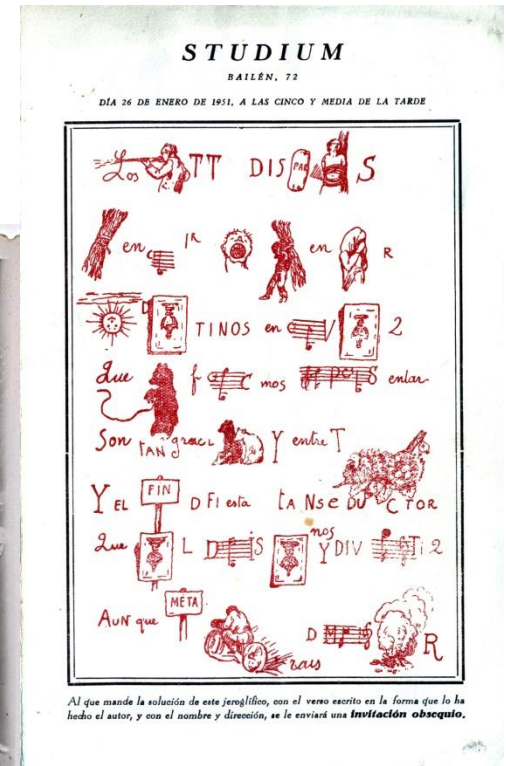 STUDIUM
BAILÉN, 72
DÍA 26 DE ENERO DE 1951, A LAS CINCO Y MEDIA DE LA TARDE
Los TT DIS PAR S
en IR en R
D TINOS en V 2
Que f mos S entar
Son TAN graci Y entre T
Y EL FIN D FI esta tA NSe DU C TOR
Que L D IS nos Y DIV Ti 2
AUN que META rais D R
Al que mande la solución de este jeroglífico, con el verso escrito en la forma que lo ha
hecho el autor, y con el nombre y dirección, se le enviará una invitación obsequio.